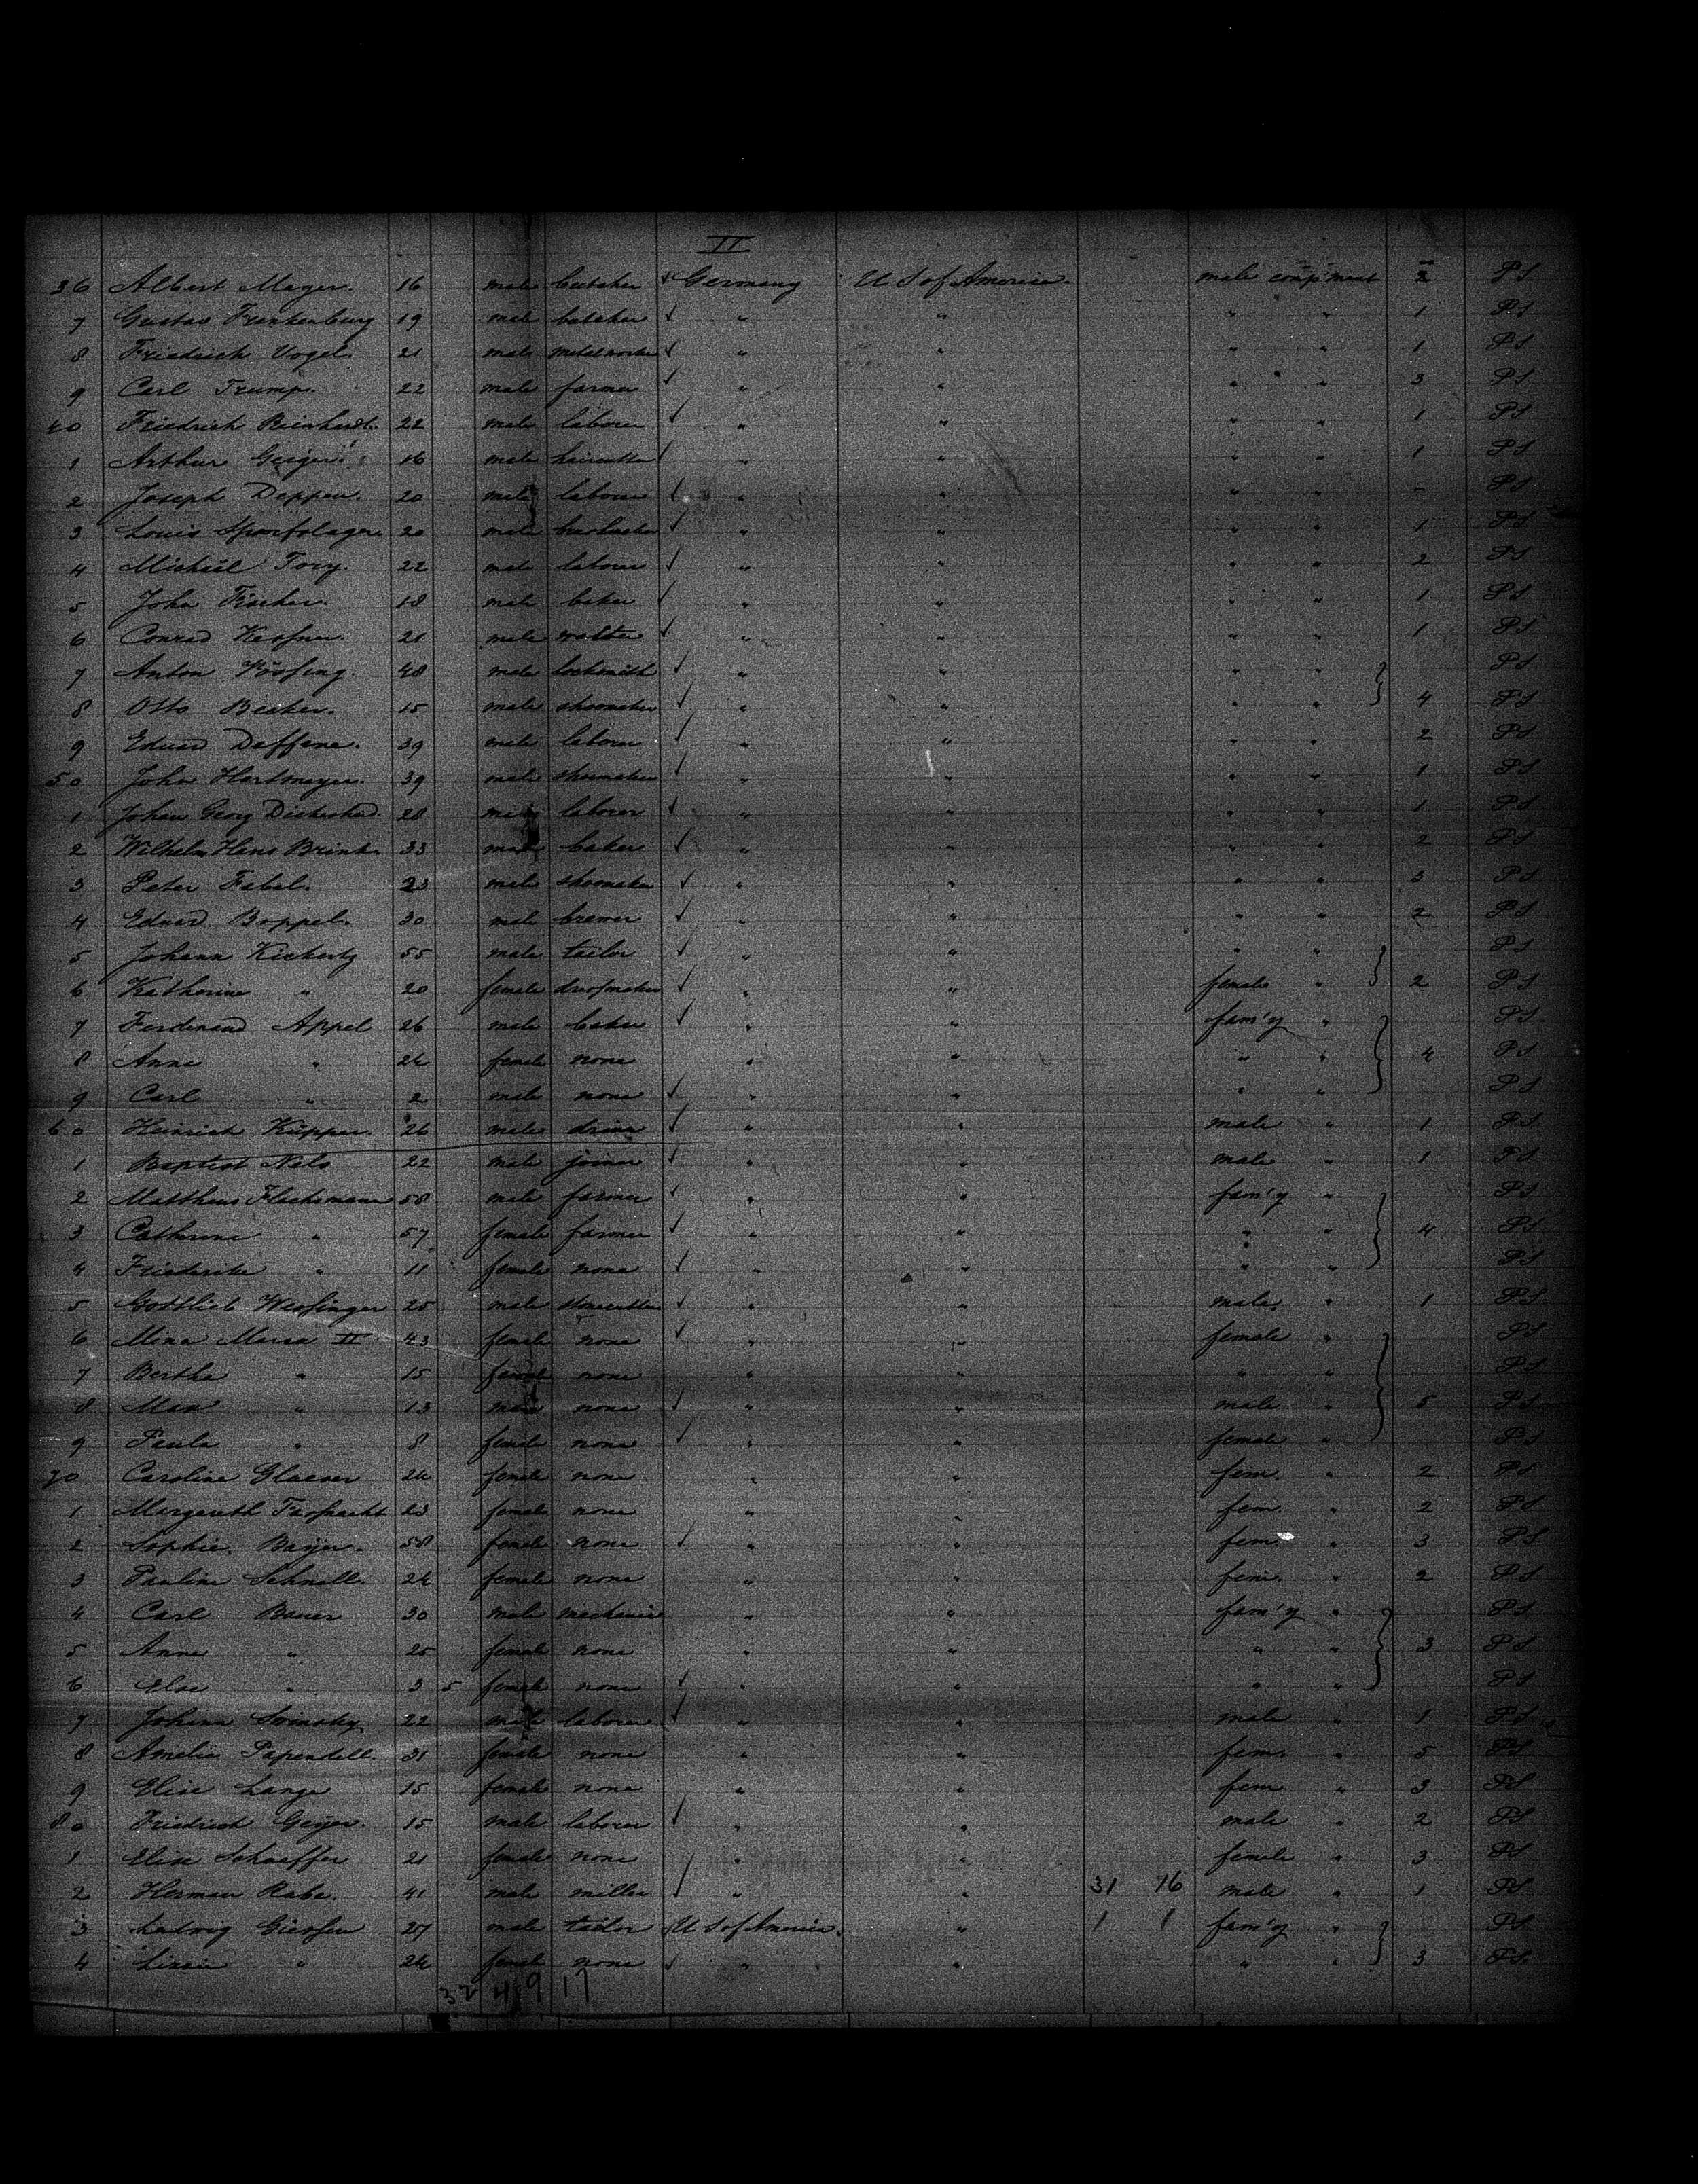 II
36 Albert Mayer. 16 male butcher Germany U S of America. male comp'ment 2 PS
7 Gustav Frankenburg 19 male butcher " " " " 1 PS
8 Friedrich Vogel. 21 male metalworker " " " " 1 PS
9 Carl Trump. 22 male farmer " " " " 3 PS
40 Friedrich Reinhardt. 22 male laborer " " " " 1 PS
1 Arthur Geiger. 16 male haircutter " " " " 1 PS
2 Joseph Deppen. 20 male laborer " " " " - PS
3 Louis 20 male " " " " 1 PS
4 Michael 22 male laborer " " " " 2 PS
5 John Fischer. 18 male baker " " " " 1 PS
6 Conrad Kessner. 21 male " " " " 1 PS
7 Anton 48 male locksmith " " " " PS
8 Otto Becker. 15 male shoemaker " " " " 4 PS
9 Eduard Deffene. 39 male laborer " " " " 2 PS
50 John Hartmeyer. 39 male shoemaker " " " " 1 PS
1 Johann Georg 28 male laborer " " " " 1 PS
2 Wilhelm Hans Brink 33 male baker " " " " 2 PS
3 Peter Fabel. 23 male shoemaker " " " " 3 PS
4 Eduard Boppel. 30 male brewer " " " " 2 PS
5 Johann Kickertz 55 male tailor " " " " PS
6 Katharina " 20 female dressmaker " " female " 2 PS
7 Ferdinand Appel 26 male baker " " fam'y " PS
8 Anna " 24 female none " " " " 4 PS
9 Carl " 2 male none " " " " PS
60 Heinrich Küpper. 26 male " " male " 1 PS
1 Baptist Nels 22 male joiner " " male " 1 PS
2 Matthaus Flachsmann 58 male farmer " " fam'y " PS
3 Cathrine " 57 female farmer " " " " 4 PS
4 Friederike " 11 female none " " " " PS
5 Gottlieb Wessinger 25 male stonecutter " " male " 1 PS
6 Mina II 43 female none " " female " PS
7 Bertha " 15 female none " " " " PS
8 Max " 13 male none " " male " 5 PS
9 Paula " 8 female none " " female " PS
70 Caroline Glaeser 24 female none " fem. " 2 PS
1 Margareth 23 female none " fem. " 2 PS
2 Sophie Bayer. 58 female none " " fem. " 3 PS
3 Pauline Schnell. 24 female none " " fem. " 2 PS
4 Carl Bauer 30 male mechanic " " fam'y " PS
5 Anna " 25 female none " " " " 3 PS
6 Else " 3 5 female none " " " " PS
7 Johann 22 male laborer " " male " 1 PS
8 Amelie Papendell. 31 female none " " fem. " 5 PS
9 Elise Lange 15 female none " " fem " 3 PS
80 Friedrich Geyer. 15 male laborer " " male " 2 PS
1 Elise Schaeffer 21 female none " " female " 3 PS
2 Herman Rabe. 41 male miller " " 31 16 male " 1 PS
3 Ludwig Giessen 27 male tailor U S of America. " 1 1 fam'y " PS
4 " 24 female none " " " " 3 PS
32 49 17